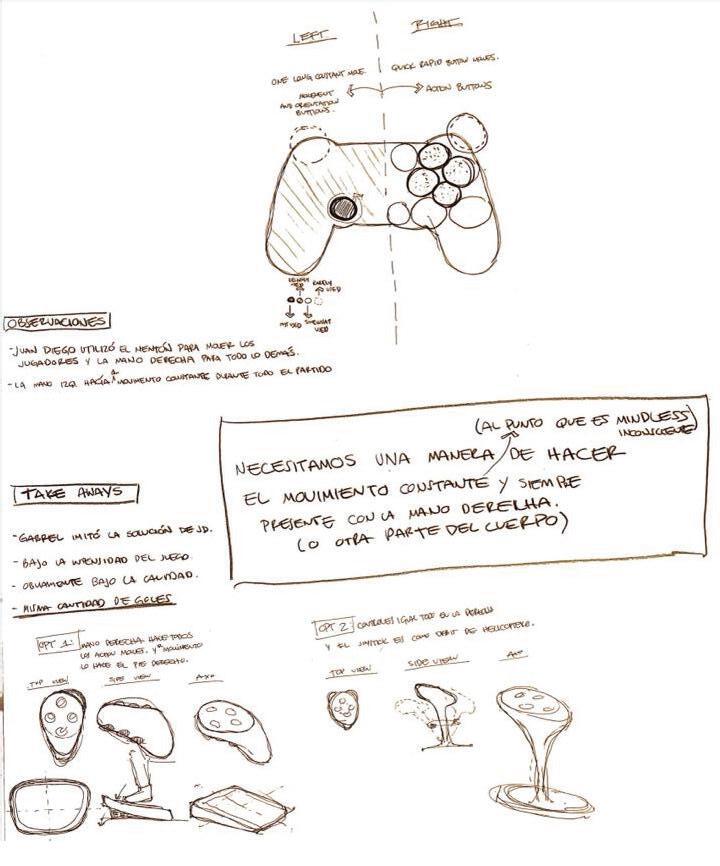 LEFT
RIGHT
ONE LONG CONSTANT MOVE.
QUICK RAPID BUTTON MOVES.
MOVEMENT
AND ORIENTATION
BUTTONS.
ACTION BUTTONS
RARELY
USED
SOMEWHAT
USED
OBSERVACIONES
- JUAN DIEGO UTILIZÓ EL MENTÓN PARA MOVER LOS
JUGADORES Y LA MANO DERECHA PARA TODO LO DEMÁS.
- LA MANO IZQ. HACÍA MOVIMIENTO CONSTANTE DURANTE TODO EL PARTIDO
(AL PUNTO QUE ES MINDLESS)
INCONSCIENTE
NECESITAMOS UNA MANERA DE HACER
EL MOVIMIENTO CONSTANTE Y SIEMPRE
PRESENTE CON LA MANO DERECHA.
(O OTRA PARTE DEL CUERPO)
TAKE AWAYS
- GABRIEL IMITÓ LA SOLUCIÓN DE JD.
- BAJO LA INTENSIDAD DEL JUEGO.
- OBVIAMENTE BAJO LA CALIDAD.
- MISMA CANTIDAD DE GOLES
OPT 1: MANO DERECHA HACE TODOS
LOS ACTION MOVES, Y MOVIMIENTO
LO HACE EL PIE DERECHO.
TOP VIEW
SIDE VIEW
AXO
OPT 2: CONTROLES IGUAL TODO EN LA DERECHA
Y EL JOYSTICK ES COMO DE HELICOPTERO.
TOP VIEW
SIDE VIEW
AXO